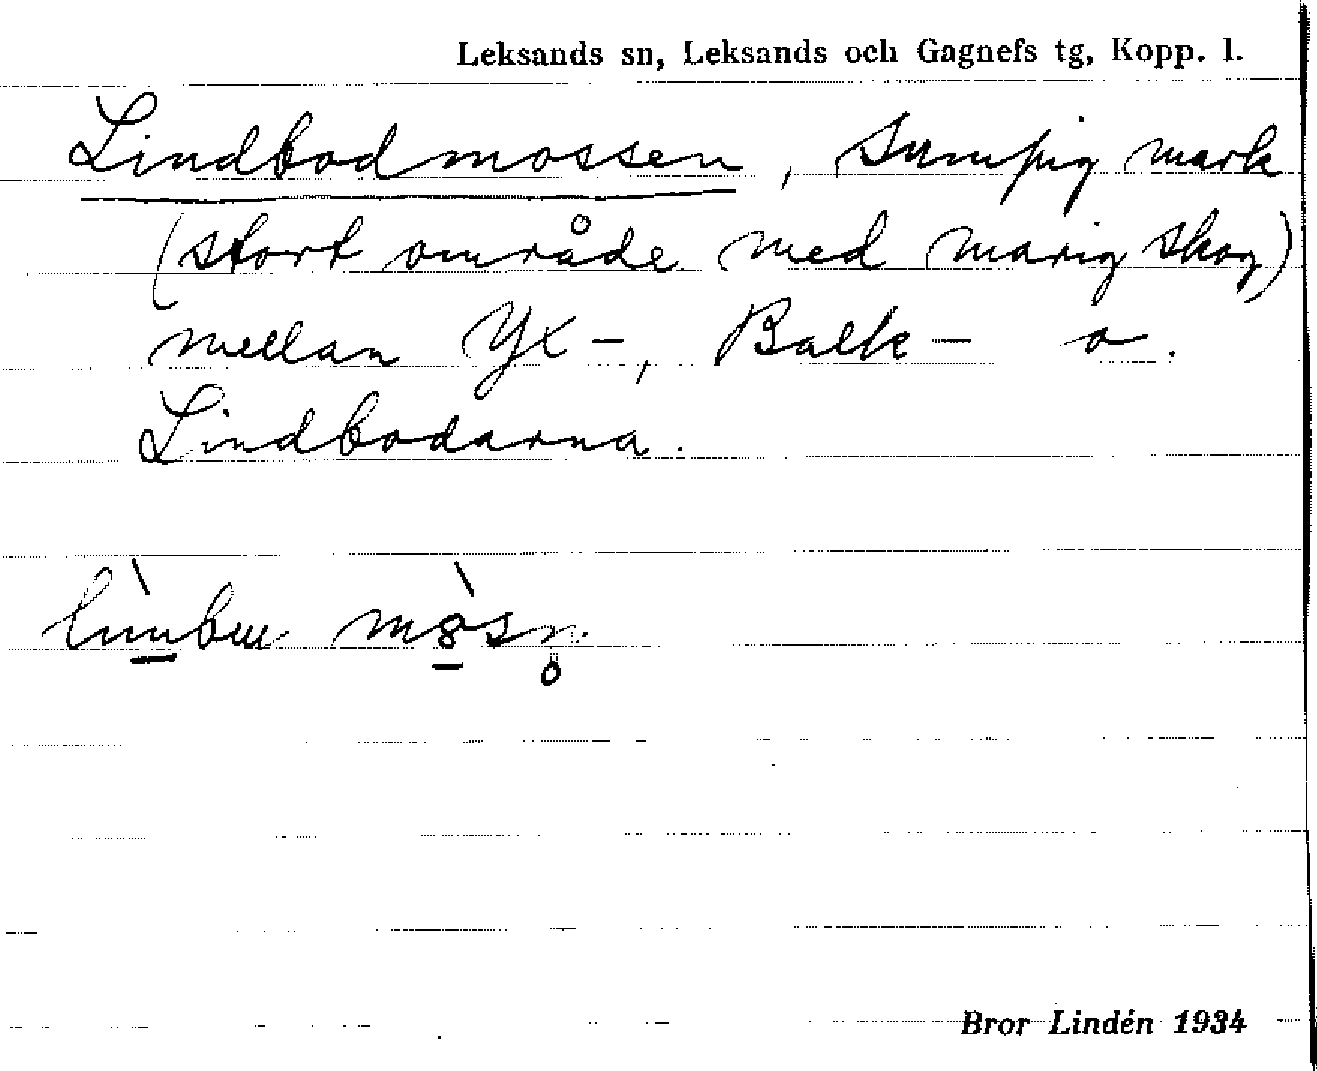 Leksands sn, Leksands och Gagnefs tg, Kopp. l.
Lindbodmossen, Sumpig mark
(stort område med marig skog)
mellan Yx-, Balk- o.
Lindbodarna.
Bror Lindén 1934